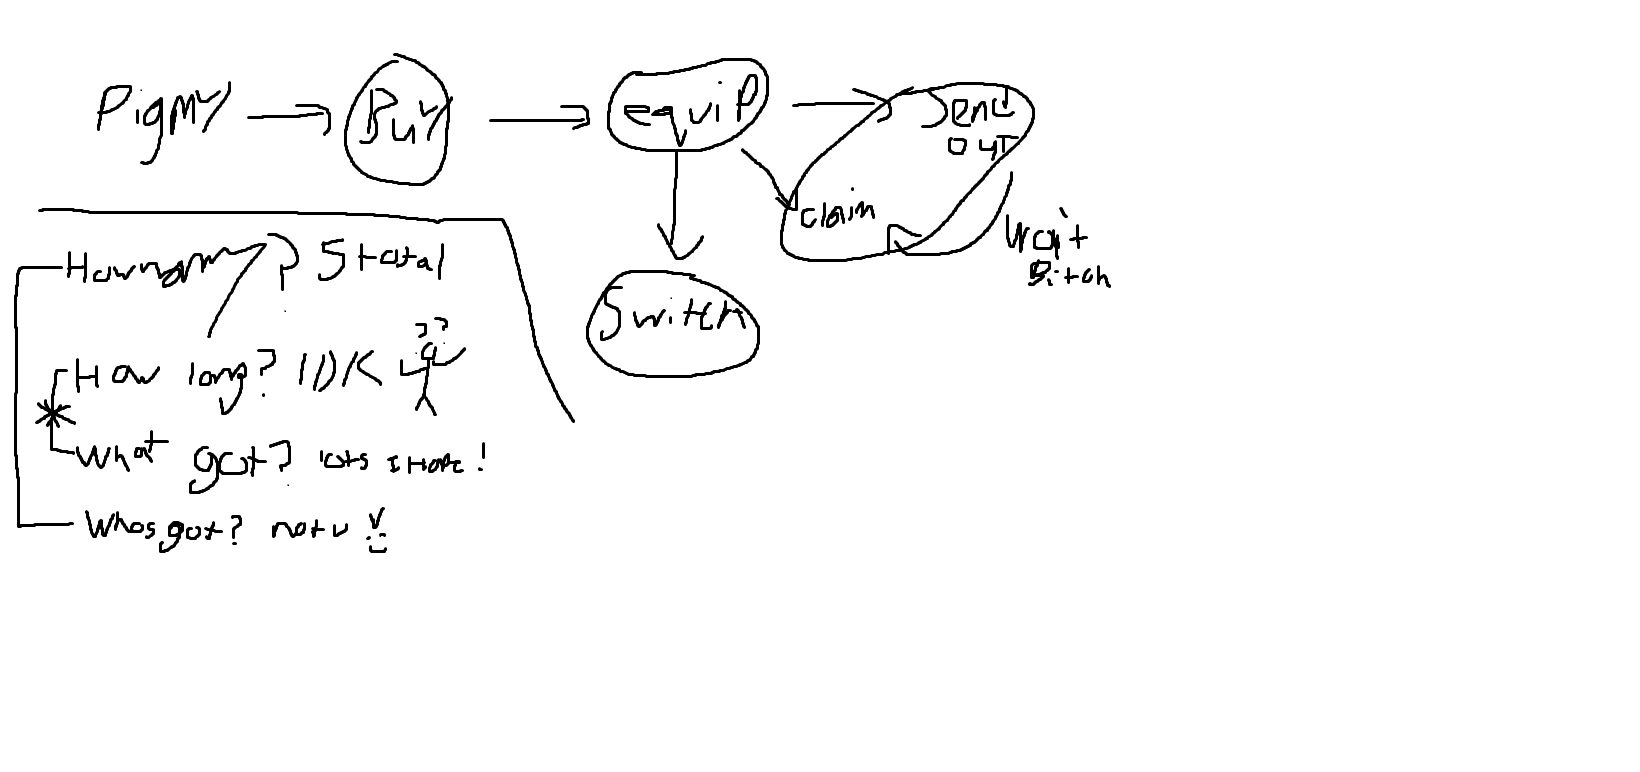 PigMY BuY equiP Send
OUT
claim
Wait
Bitch
Switch
How many? 5 total
How long? IDK ??
What got? lots I HoPe!
Whos got? not u